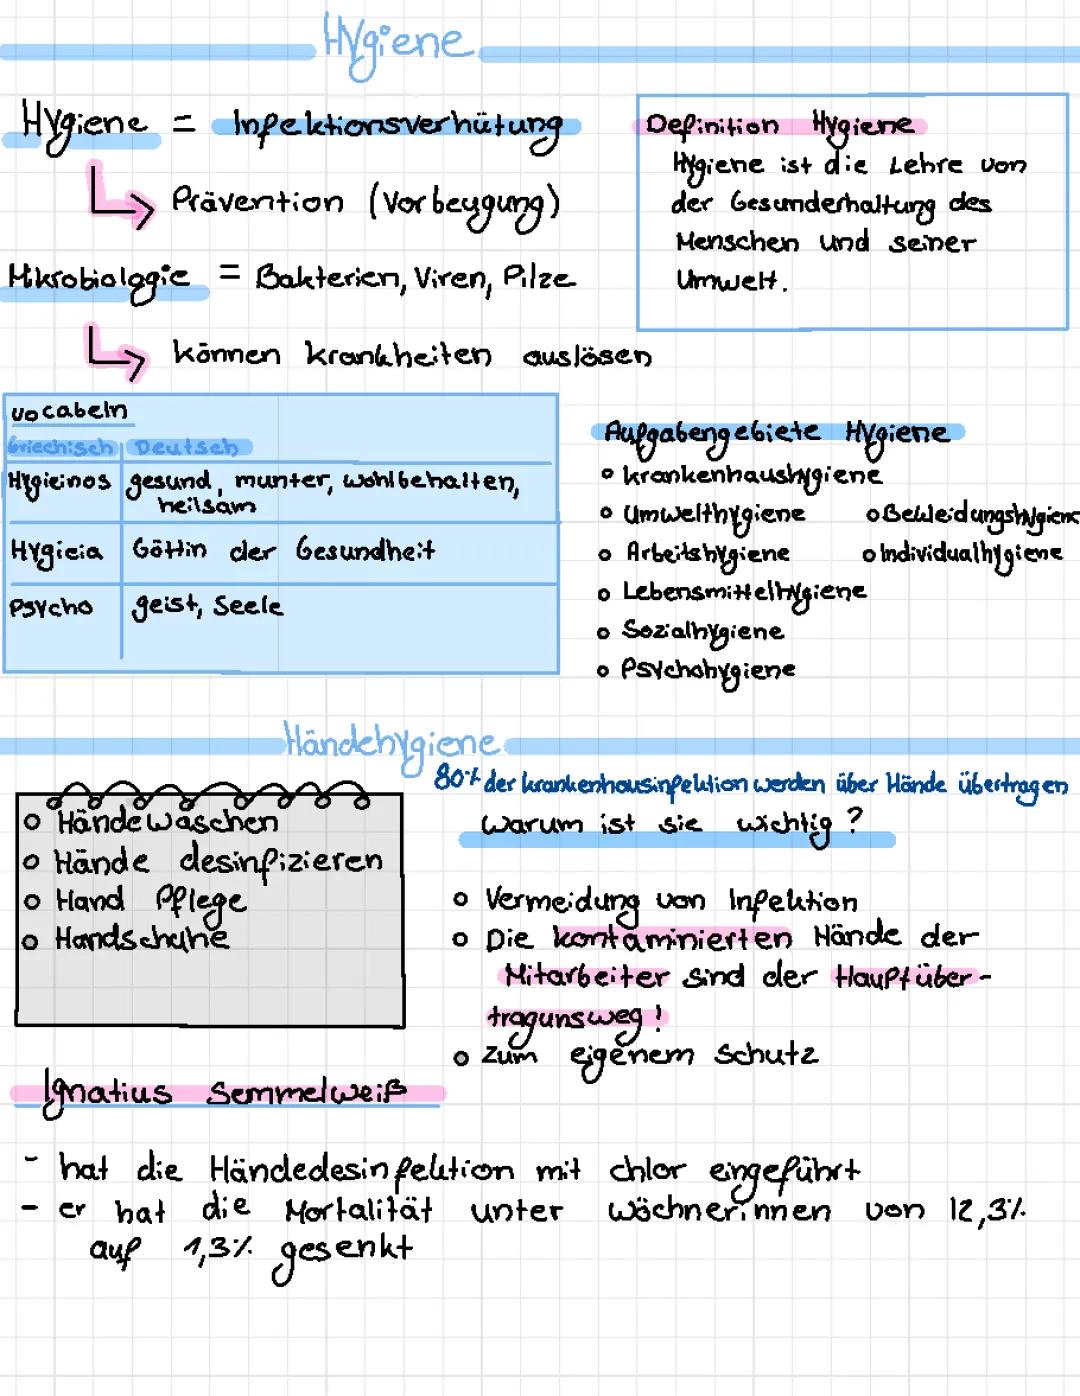 Hygiene
Hygiene = Infektionsverhütung
Prävention (Vorbeugung)
Mikrobiologie = Bakterien, Viren, Pilze
können krankheiten auslösen
Definition Hygiene
Hygiene ist die Lehre von
der Gesunderhaltung des
Menschen und seiner
Umwelt.
vocabeln
Griechisch Deutsch
Hygieinos gesund, munter, wohlbehalten,
heilsam
Hygieia Göttin der Gesundheit
Psycho geist, Seele
Aufgabengebiete Hygiene
o krankenhaushygiene
o Umwelthygiene o Bekleidungshygiene
o Arbeitshygiene o Individualhygiene
o Lebensmittelhygiene
o Sozialhygiene
o Psychohygiene
Händehygiene
80% der krankenhausinfektion werden über Hände übertragen
o Händewaschen
o Hände desinfizieren
o Hand Pflege
o Handschuhe
Warum ist sie wichtig?
o Vermeidung von Infektion
o Die kontaminierten Hände der
Mitarbeiter sind der Hauptüber-
tragunsweg!
o Zum eigenem Schutz
Ignatius Semmelweiß
- hat die Händedesinfektion mit chlor eingeführt
- er hat die Mortalität unter wöchnerinnen von 12,3%
auf 1,3% gesenkt